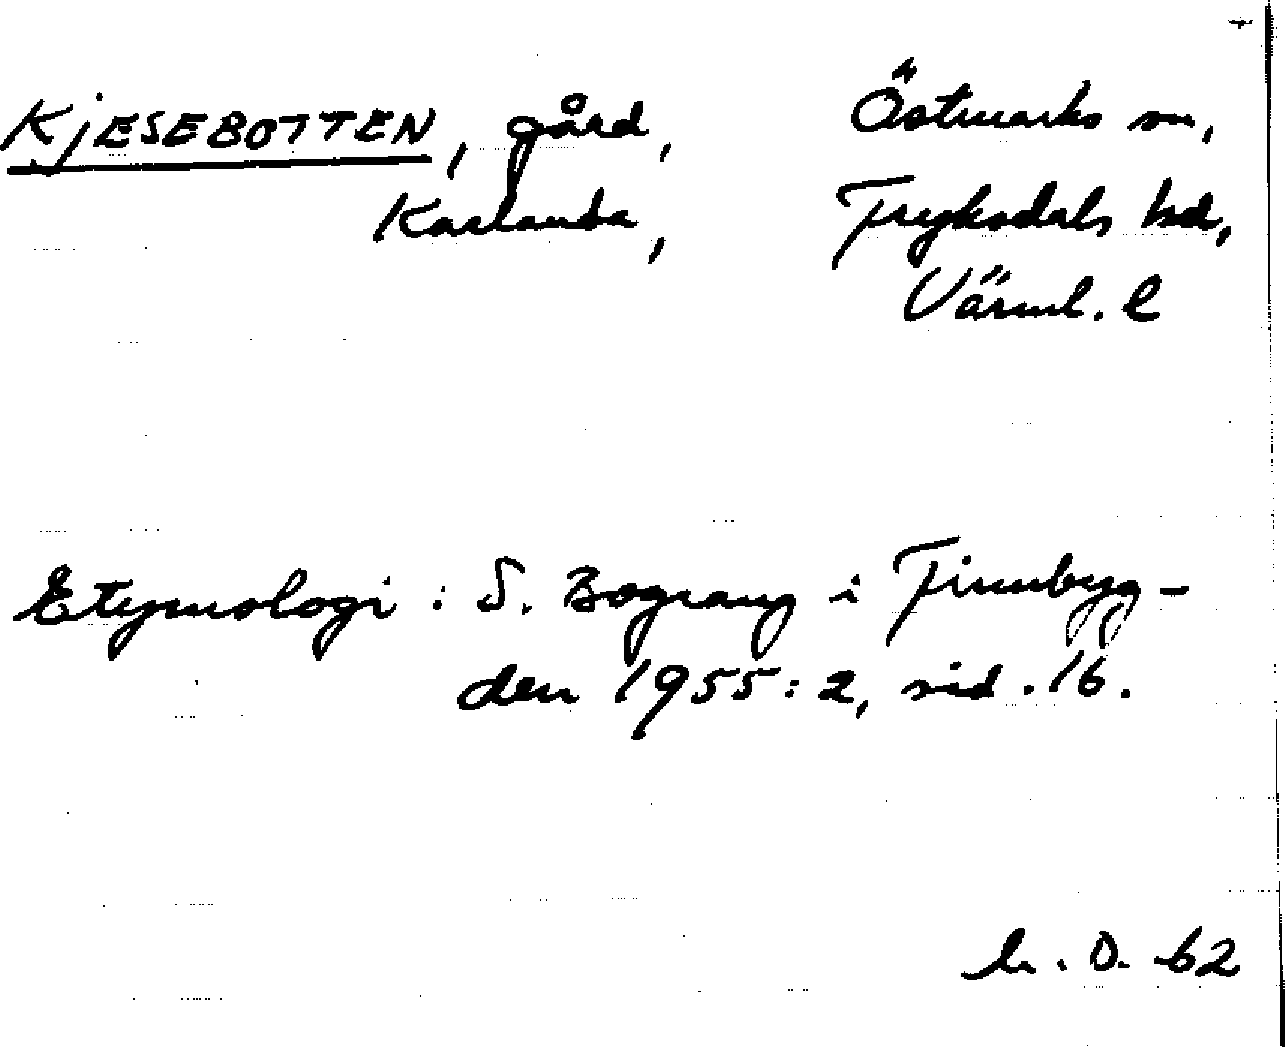 KjESEBOTTEN, gård, Östmarks sn,
Kaslanda, Fryksdals hd,
Värml. l
Etymologi: S. Bograng i Finnbyg-
den 1955:2, sid. 16.
D. 62